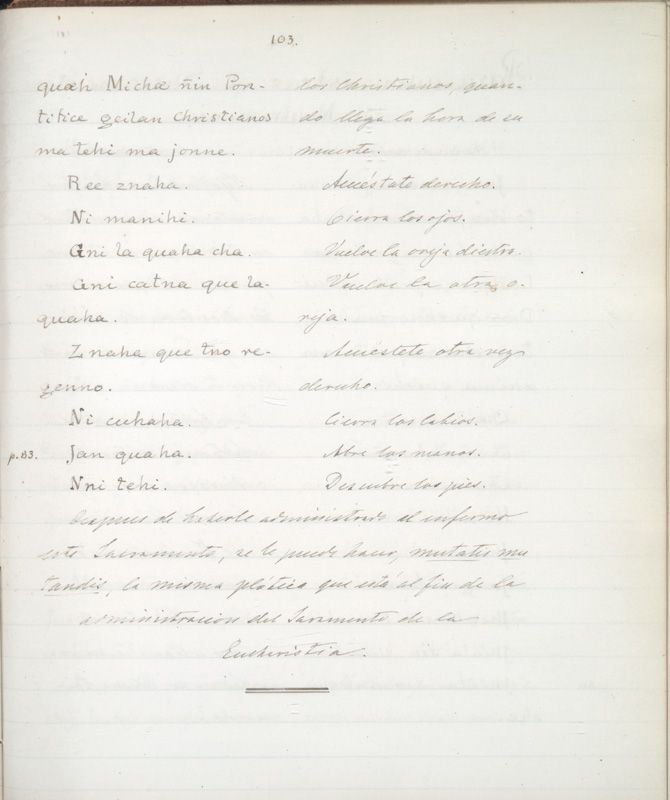 103.
quæh Michæ ñin Pon- los Christianos, quan-
tifice geilan Christianos do llega la hora de su
ma tehi ma jonne. muerte.
Ree znaha. Acuéstate derecho.
Ni manihi. Cierra los ojos.
Gni la quaha cha. Vuelve la oreja diestra.
Gni catna que la- Vuelve la otra o-
quaha. reja.
Znaha que tno re- Acuéstete otra vez
genno. derecho.
Ni cuhaha. Cierra los labios.
p.83. Jan quaha. Abre las manos.
Nni tehi. Descubre los pies.
Despues de haserle administrado al enfermo
este Sacramento, se le puede hacer, mutatis mu
tandis, la misma plática que está al fin de la
administracion del Saramento de la
Eucheristia.